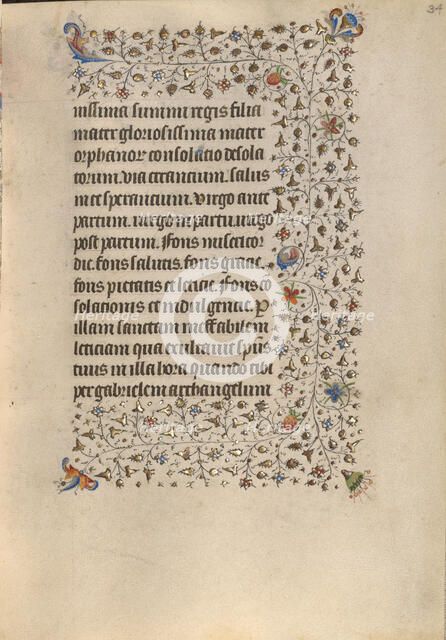 34
nissima summi regis filia
mater gloriosissima mater
orphanor consolatio desola
torum. via errantium. salus
in te sperancium. virgo ante
partum. virgo in partu. virgo
post partum. Fons misericor
die. fons salutis. fons gracie.
fons pietatis et leticie. Fons co
solationis et indulgencie. P
illam sanctam ineffabilem
leticiam qua exultauit spūs
tuus in illa hora quando tibi
per gabrielem archangelum
heritage
heritage
heritage
heritage
heritage
heritage